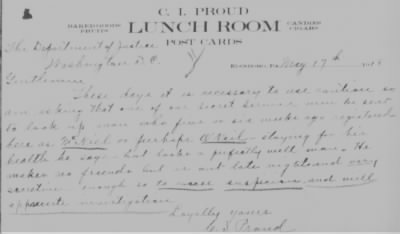 C. I. PROUD
BAKED GOODS
FRUITS
LUNCH ROOM
CANDIES
CIGARS
POST CARDS
The Department of Justice
Washington D.C.
May 17th 191
Gentlemen
These days it is necessary to use caution so
am asking that one of our secret service men be sent
to look up man who five or six weeks ago registered
here as McNeil or perhaps O'Neil - staying for his
health he says - but looks a perfectly well man. He
makes no friends but is out late nights and very
secretive enough so to cause suspicion and will
appreciate investigation
Loyally yours
C. I. Proud